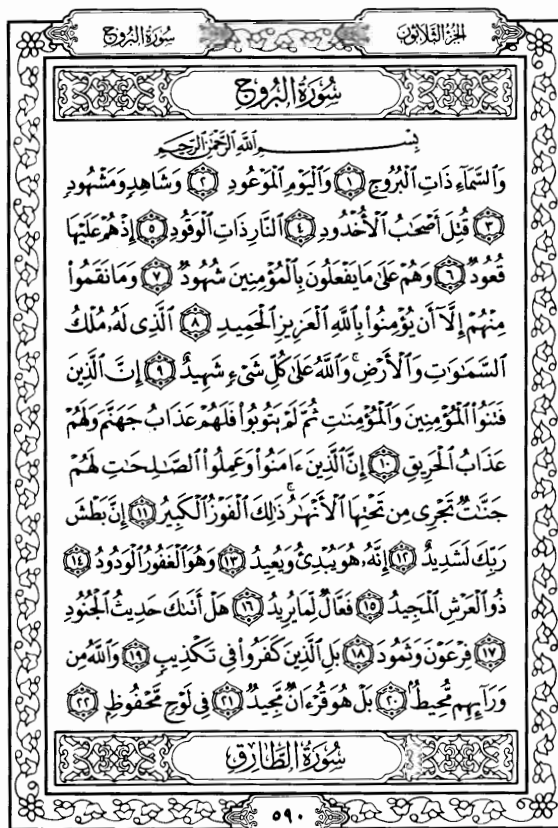 سُورَةُ البُرُوجِ الجُزْءُ الثَّلَاثُونَ
سُورَةُ البُرُوجِ
بِسْمِ اللَّهِ الرَّحْمَٰنِ الرَّحِيمِ
وَالسَّمَاءِ ذَاتِ الْبُرُوجِ ١ وَالْيَوْمِ الْمَوْعُودِ ٢ وَشَاهِدٍ وَمَشْهُودٍ
٣ قُتِلَ أَصْحَٰبُ الْأُخْدُودِ ٤ النَّارِ ذَاتِ الْوَقُودِ ٥ إِذْ هُمْ عَلَيْهَا
قُعُودٌ ٦ وَهُمْ عَلَىٰ مَا يَفْعَلُونَ بِالْمُؤْمِنِينَ شُهُودٌ ٧ وَمَا نَقَمُوا
مِنْهُمْ إِلَّا أَن يُؤْمِنُوا بِاللَّهِ الْعَزِيزِ الْحَمِيدِ ٨ الَّذِي لَهُ مُلْكُ
السَّمَٰوَٰتِ وَالْأَرْضِ ۚ وَاللَّهُ عَلَىٰ كُلِّ شَيْءٍ شَهِيدٌ ٩ إِنَّ الَّذِينَ
فَتَنُوا الْمُؤْمِنِينَ وَالْمُؤْمِنَٰتِ ثُمَّ لَمْ يَتُوبُوا فَلَهُمْ عَذَابُ جَهَنَّمَ وَلَهُمْ
عَذَابُ الْحَرِيقِ ١٠ إِنَّ الَّذِينَ ءَامَنُوا وَعَمِلُوا الصَّٰلِحَٰتِ لَهُمْ
جَنَّٰتٌ تَجْرِي مِن تَحْتِهَا الْأَنْهَٰرُ ۚ ذَٰلِكَ الْفَوْزُ الْكَبِيرُ ١١ إِنَّ بَطْشَ
رَبِّكَ لَشَدِيدٌ ١٢ إِنَّهُ هُوَ يُبْدِئُ وَيُعِيدُ ١٣ وَهُوَ الْغَفُورُ الْوَدُودُ ١٤
ذُو الْعَرْشِ الْمَجِيدُ ١٥ فَعَّالٌ لِّمَا يُرِيدُ ١٦ هَلْ أَتَىٰكَ حَدِيثُ الْجُنُودِ
١٧ فِرْعَوْنَ وَثَمُودَ ١٨ بَلِ الَّذِينَ كَفَرُوا فِي تَكْذِيبٍ ١٩ وَاللَّهُ مِن
وَرَائِهِم مُّحِيطٌ ٢٠ بَلْ هُوَ قُرْءَانٌ مَّجِيدٌ ٢١ فِي لَوْحٍ مَّحْفُوظٍ ٢٢
سُورَةُ الطَّارِقِ
٥٩٠